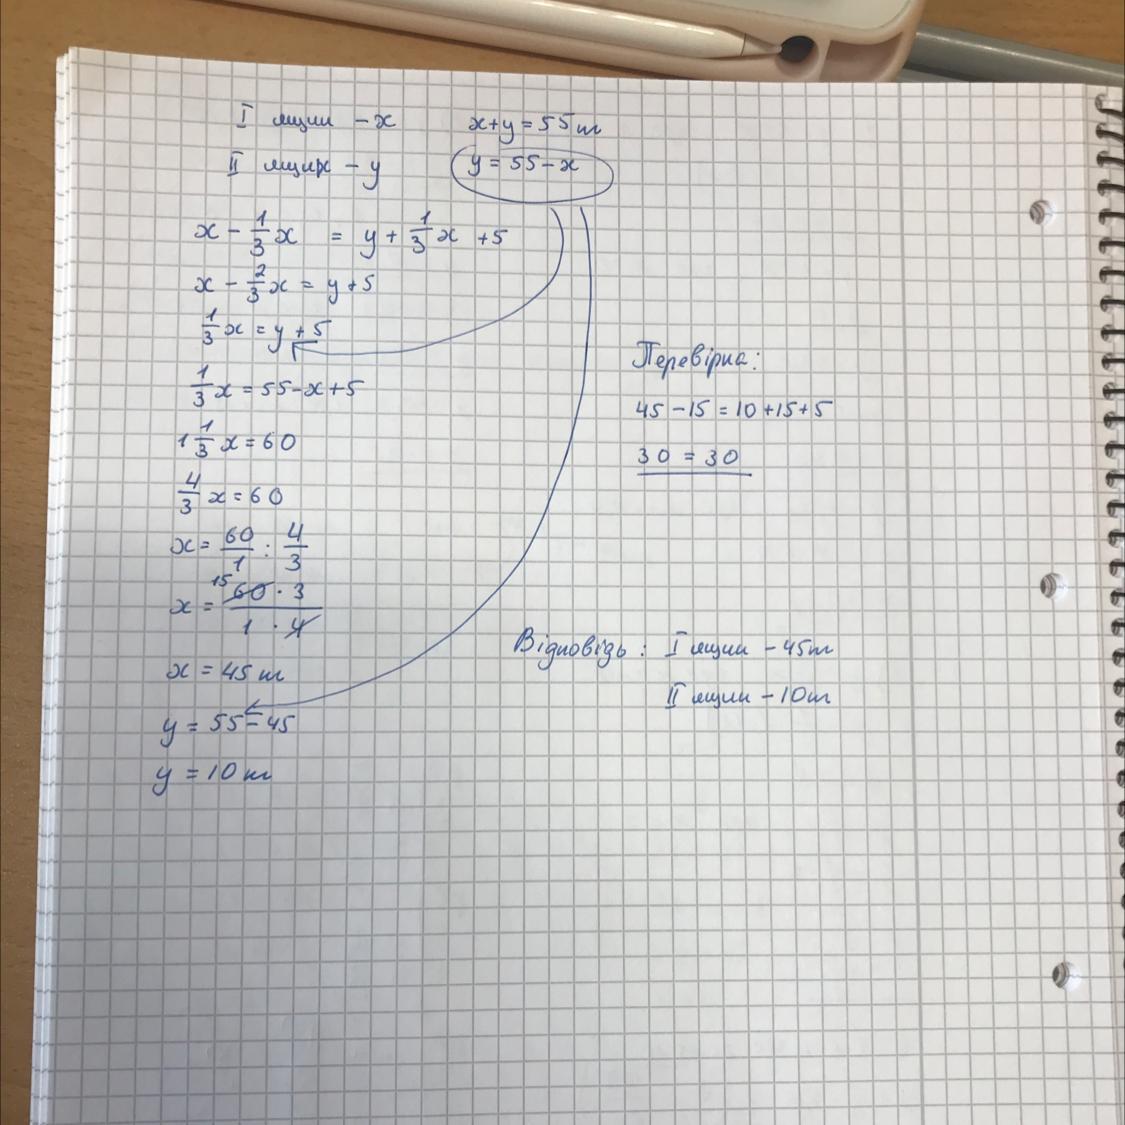 I ящик - x
x+y=55 ш
II ящик - y
y = 55-x
x - 1/3 x = y + 1/3 x +5
x - 2/3 x = y+5
1/3 x = y+5
1/3 x = 55-x+5
1 1/3 x = 60
4/3 x = 60
x = 60/1 : 4/3
x = 15 60·3 / 1·4
x = 45 ш
y = 55-45
y = 10 ш
Перевірка:
45-15=10+15+5
30 = 30
Відповідь: I ящик - 45ш
II ящик - 10ш